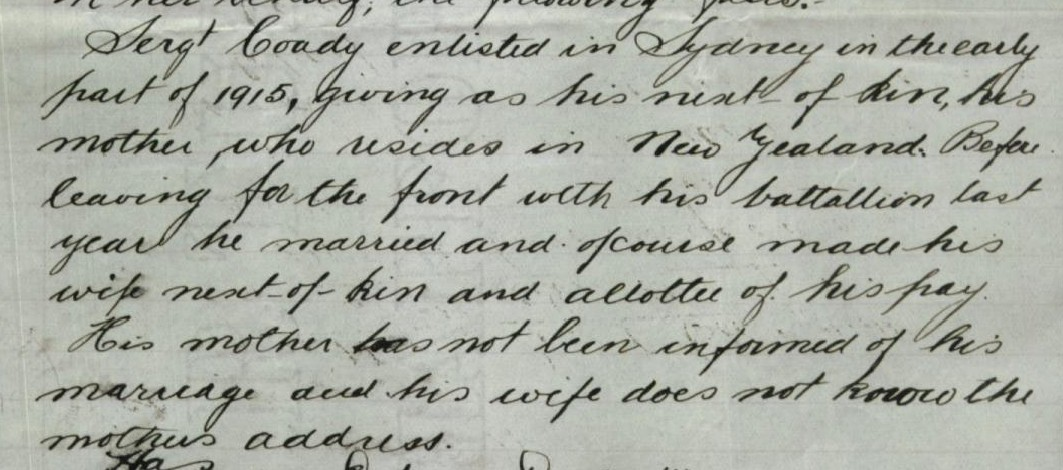 in her behalf, the following facts:-
Sergt Coady enlisted in Sydney in the early
part of 1915, giving as his next-of kin, his
mother, who resides in New Zealand. Before
leaving for the front with his battallion last
year he married and ofcourse made his
wife next-of-kin and allottee of his pay.
His mother has not been informed of his
marriage and his wife does not know the
mothers address.